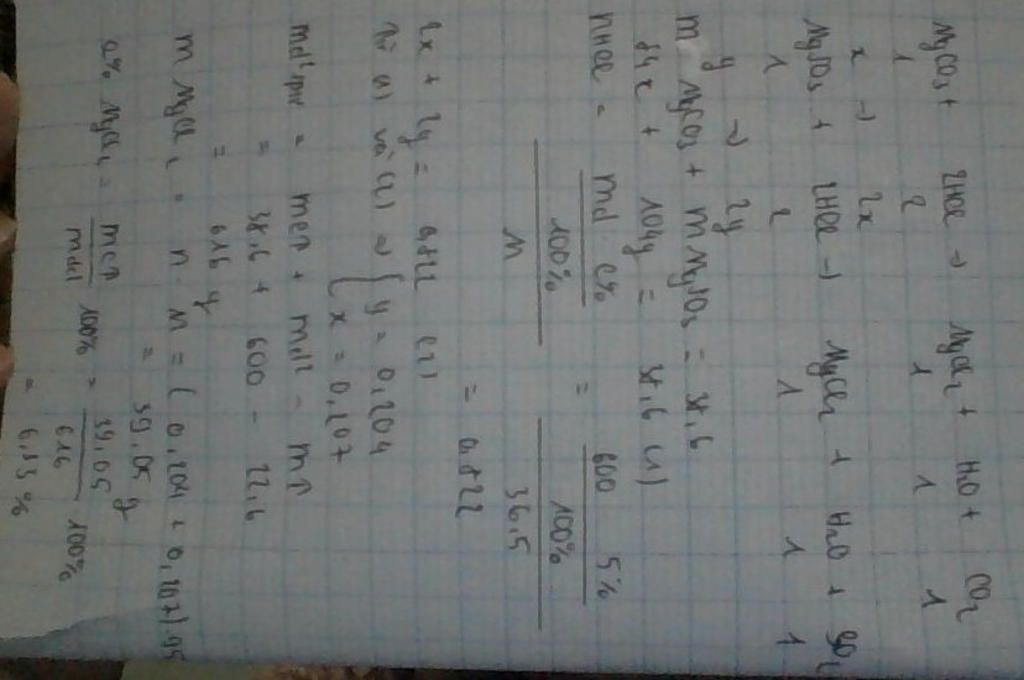 MgCO3 + 2HCl -> MgCl2 + H2O + CO2
1 2 1 1 1
x -> 2x
MgSO3 + 2HCl -> MgCl2 + H2O + SO2
1 2 1 1 1
y -> 2y
m MgCO3 + m MgSO3 = 38,6
84x + 104y = 38,6 (1)
nHCl = md . c% / 100% / M = 600 . 5% / 100% / 36,5
= 0,822
2x + 2y = 0,822 (2)
Từ (1) và (2) => { y = 0,204
x = 0,207
md²pư = mcr + mdd - m↑
= 38,6 + 600 - 22,6
= 616 g
m MgCl2 = n . M = (0,204 + 0,207).95
= 39,05 g
c% MgCl2 = mct / mdd 100% = 39,05 / 616 100%
= 6,33 %